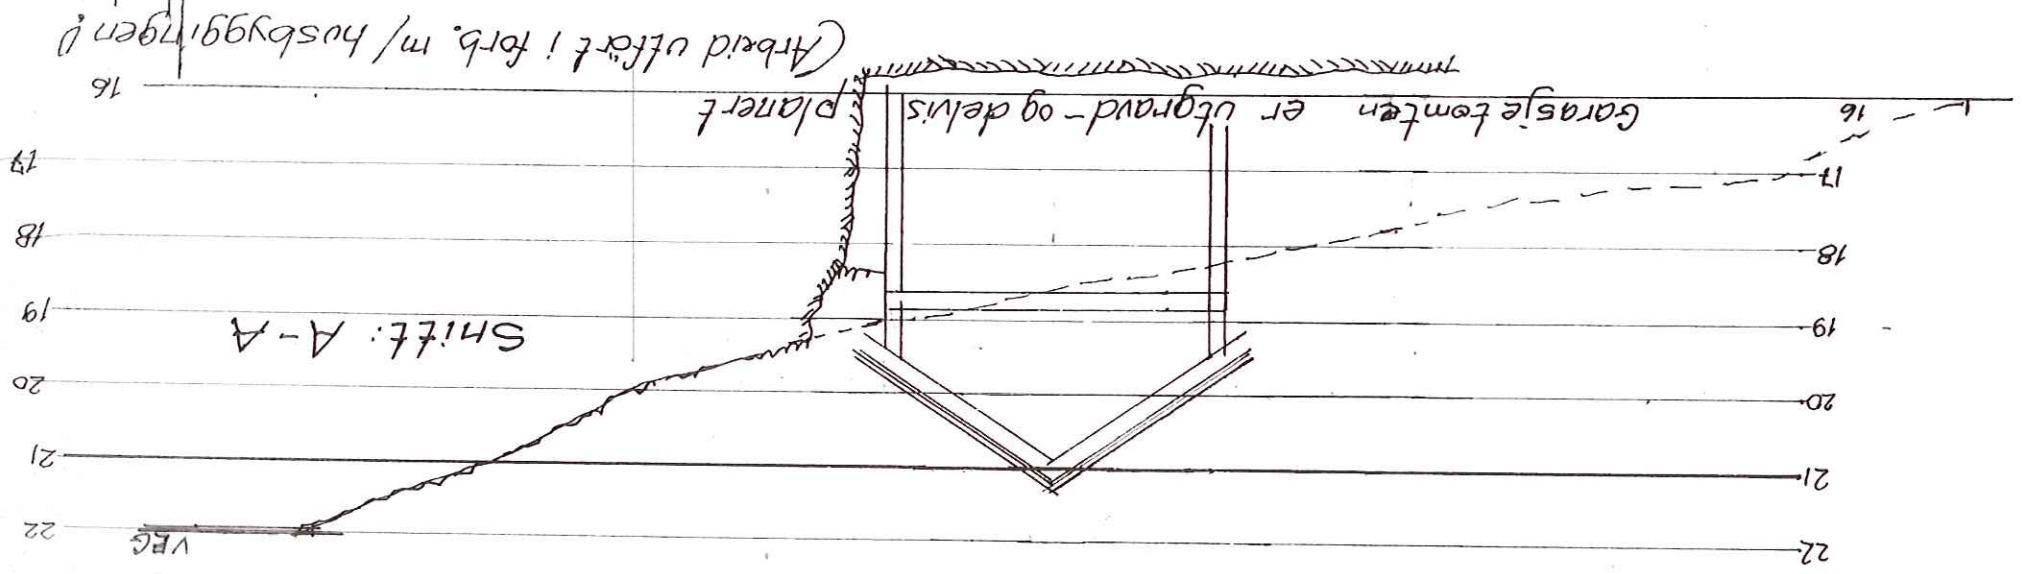 VEG
22 22
21 21
20 20
Snitt: A-A
19 19
18 18
17 17
16 16
Garasjetomten er utgravd- og delvis planert
(Arbeid utfört i forb. m/ husbyggingen!)